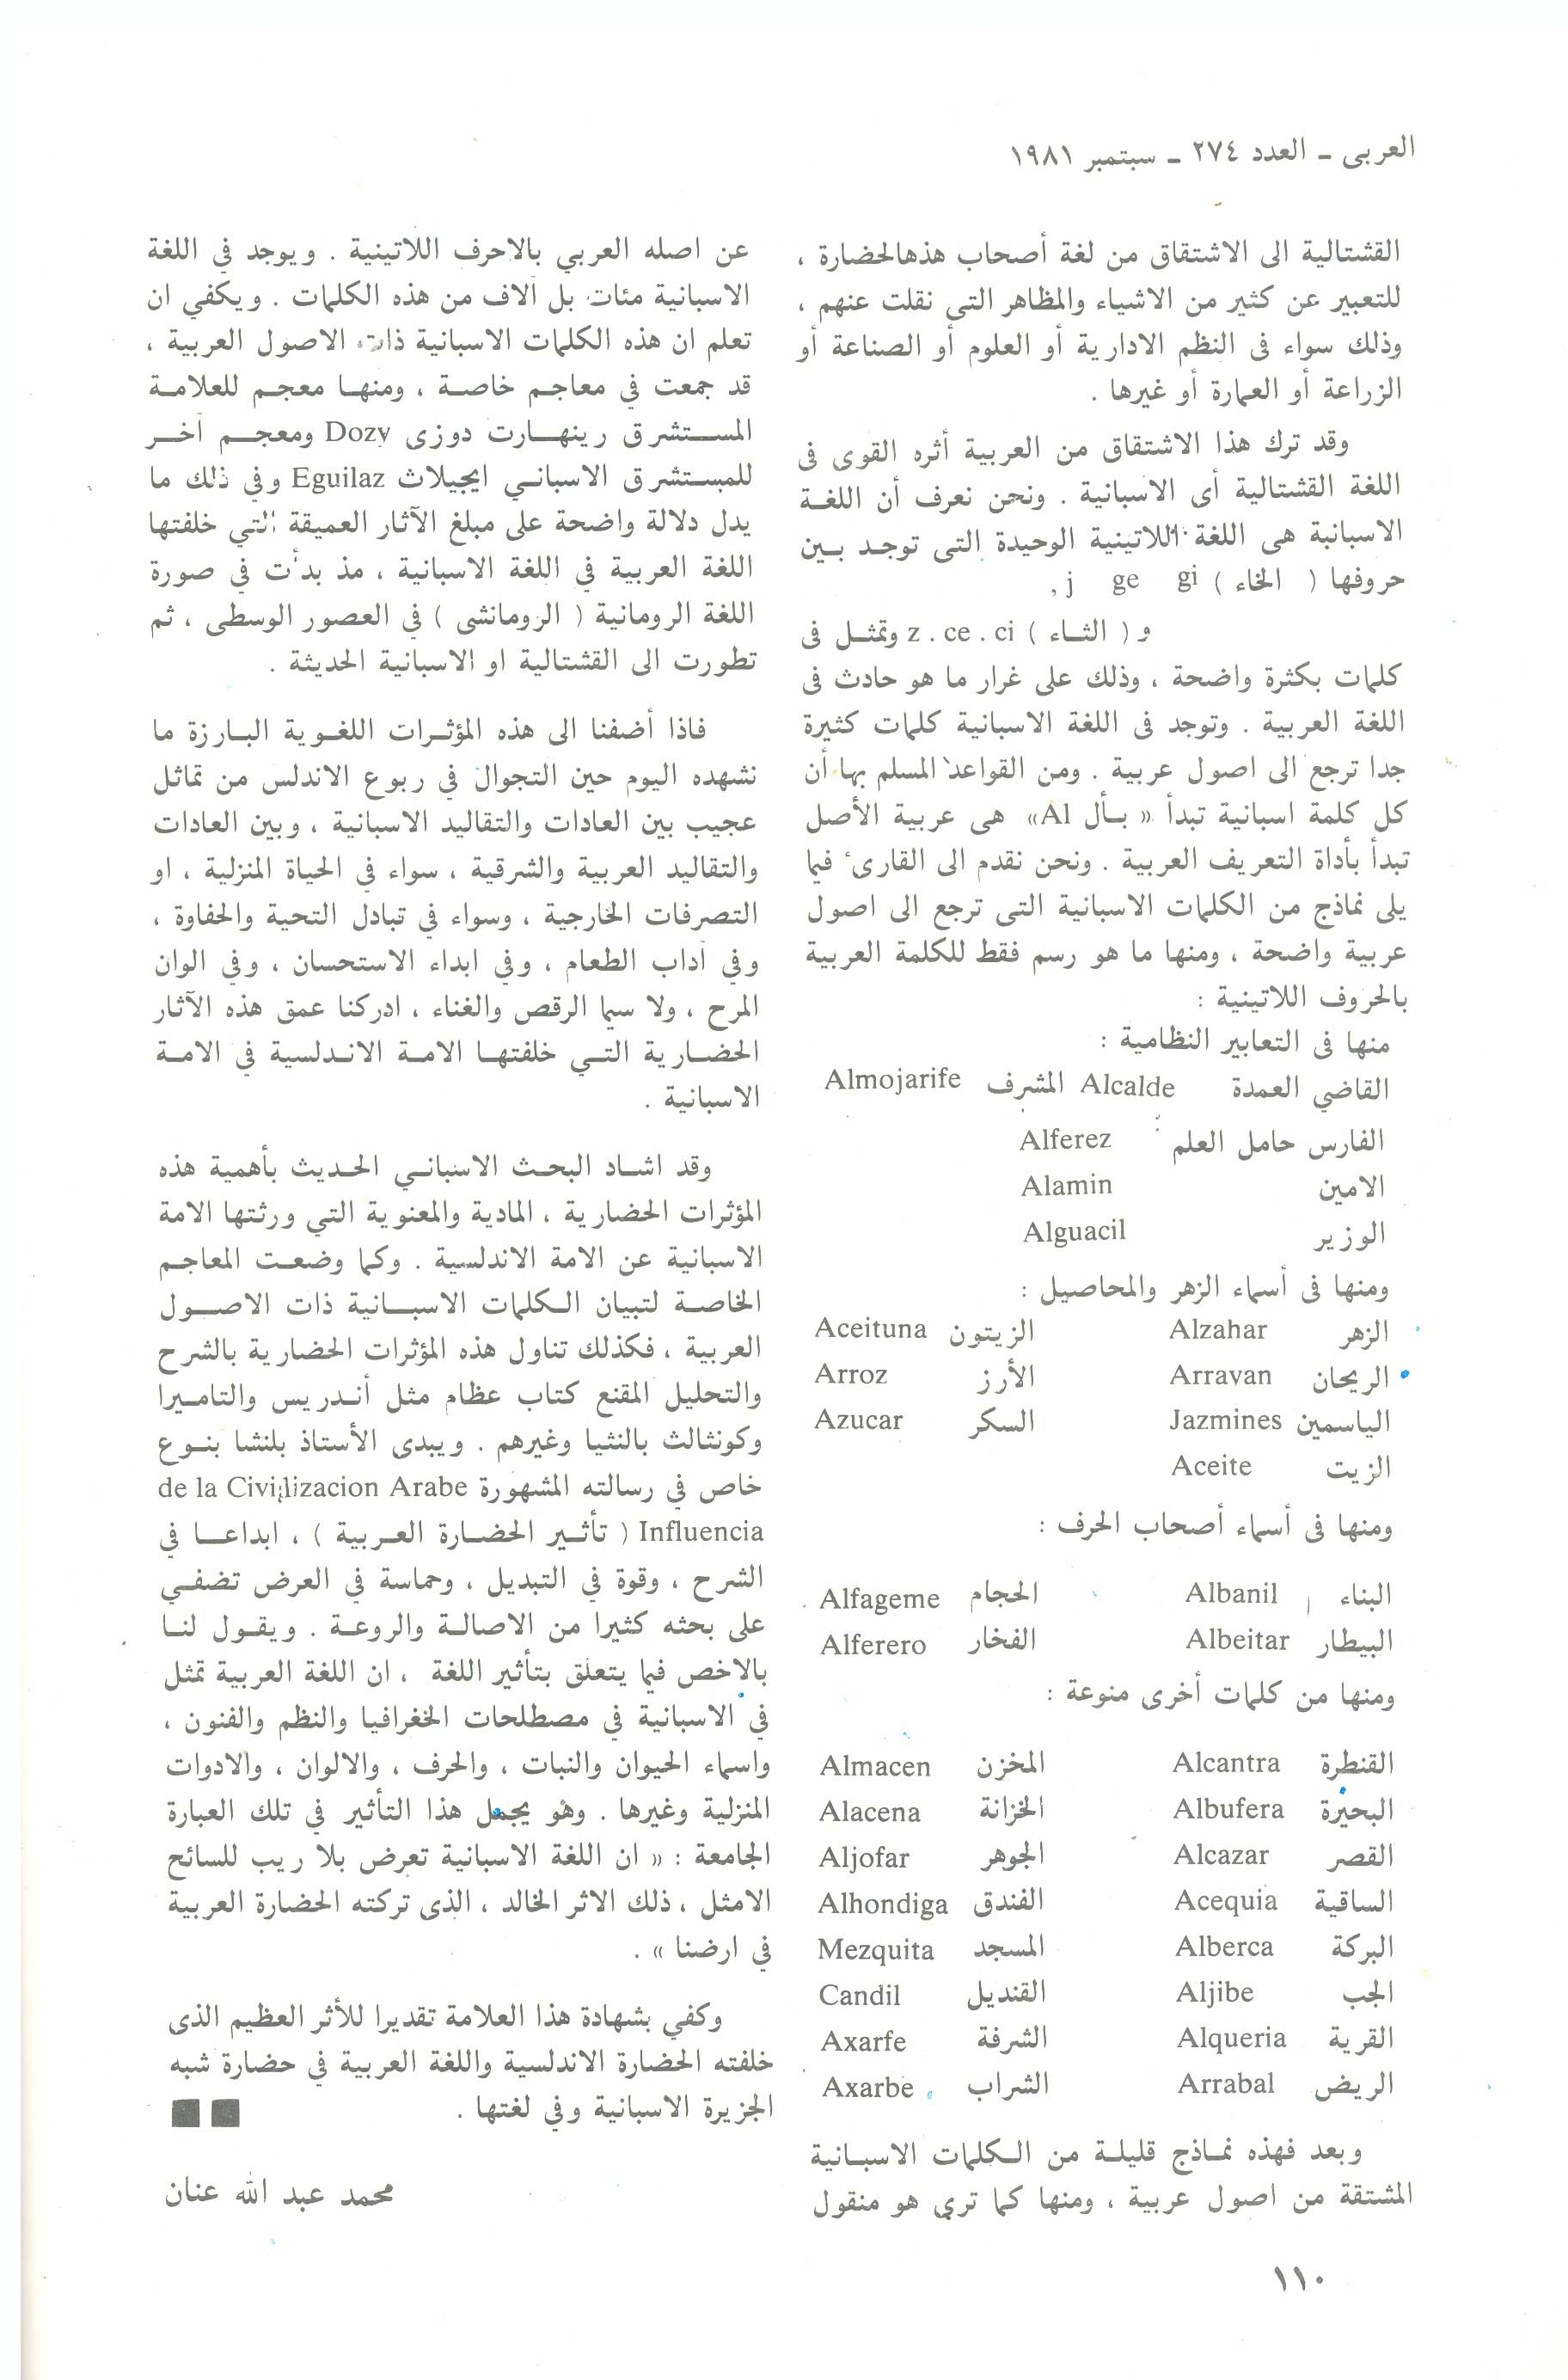 العربى – العدد ٢٧٤ – سبتمبر ١٩٨١
القشتالية الى الاشتقاق من لغة أصحاب هذهالحضارة ،
للتعبير عن كثير من الاشياء والمظاهر التى نقلت عنهم ،
وذلك سواء فى النظم الادارية أو العلوم أو الصناعة أو
الزراعة أو العمارة أو غيرها .
وقد ترك هذا الاشتقاق من العربية أثره القوى فى
اللغة القشتالية أى الاسبانية . ونحن نعرف أن اللغة
الاسبانبة هى اللغة اللاتينية الوحيدة التى توجد بين
حروفها ( الخاء ) j ge gi ,
و ( الثاء ) z . ce . ci وتمثل فى
كلمات بكثرة واضحة ، وذلك على غرار ما هو حادث فى
اللغة العربية . وتوجد فى اللغة الاسبانية كلمات كثيرة
جدا ترجع الى اصول عربية . ومن القواعد المسلم بها أن
كل كلمة اسبانية تبدأ « بأل Al» هى عربية الأصل
تبدأ بأداة التعريف العربية . ونحن نقدم الى القارىء فيما
يلى نماذج من الكلمات الاسبانية التى ترجع الى اصول
عربية واضحة ، ومنها ما هو رسم فقط للكلمة العربية
بالحروف اللاتينية :
منها فى التعابير النظامية :
القاضي العمدة Alcalde المشرف Almojarife
الفارس حامل العلم Alferez
الامين Alamin
الوزير Alguacil
ومنها فى أسماء الزهر والمحاصيل :
الزهر Alzahar الزيتون Aceituna
الريحان Arravan الأرز Arroz
الياسمين Jazmines السكر Azucar
الزيت Aceite
ومنها فى أسماء أصحاب الحرف :
البناء Albanil الحجام Alfageme
البيطار Albeitar الفخار Alferero
ومنها من كلمات أخرى منوعة :
القنطرة Alcantra المخزن Almacen
البحيرة Albufera الخزانة Alacena
القصر Alcazar الجوهر Aljofar
الساقية Acequia الفندق Alhondiga
البركة Alberca المسجد Mezquita
الجب Aljibe القنديل Candil
القرية Alqueria الشرفة Axarfe
الريض Arrabal الشراب Axarbe
وبعد فهذه نماذج قليلة من الكلمات الاسبانية
المشتقة من اصول عربية ، ومنها كما تري هو منقول
عن اصله العربي بالاحرف اللاتينية . ويوجد في اللغة
الاسبانية مئات بل آلاف من هذه الكلمات . ويكفي ان
تعلم ان هذه الكلمات الاسبانية ذات الاصول العربية ،
قد جمعت في معاجم خاصة ، ومنها معجم للعلامة
المستشرق رينهارت دوزى Dozy ومعجم آخر
للمستشرق الاسباني ايجيلاث Eguilaz وفي ذلك ما
يدل دلالة واضحة على مبلغ الآثار العميقة التي خلفتها
اللغة العربية في اللغة الاسبانية ، مذ بدأت في صورة
اللغة الرومانية ( الرومانشى ) في العصور الوسطى ، ثم
تطورت الى القشتالية او الاسبانية الحديثة .
فاذا أضفنا الى هذه المؤثرات اللغوية البارزة ما
نشهده اليوم حين التجوال في ربوع الاندلس من تماثل
عجيب بين العادات والتقاليد الاسبانية ، وبين العادات
والتقاليد العربية والشرقية ، سواء في الحياة المنزلية ، او
التصرفات الخارجية ، وسواء في تبادل التحية والحفاوة ،
وفي آداب الطعام ، وفي ابداء الاستحسان ، وفي الوان
المرح ، ولا سيما الرقص والغناء ، ادركنا عمق هذه الآثار
الحضارية التي خلفتها الامة الاندلسية في الامة
الاسبانية .
وقد اشاد البحث الاسباني الحديث بأهمية هذه
المؤثرات الحضارية ، المادية والمعنوية التي ورثتها الامة
الاسبانية عن الامة الاندلسية . وكما وضعت المعاجم
الخاصة لتبيان الكلمات الاسبانية ذات الاصول
العربية ، فكذلك تناول هذه المؤثرات الحضارية بالشرح
والتحليل المقنع كتاب عظام مثل أندريس والتاميرا
وكونثالث بالنثيا وغيرهم . ويبدى الأستاذ بلنشا بنوع
خاص في رسالته المشهورة de la Civilizacion Arabe
Influencia ( تأثير الحضارة العربية ) ، ابداعا في
الشرح ، وقوة في التبديل ، وحماسة في العرض تضفي
على بحثه كثيرا من الاصالة والروعة . ويقول لنا
بالاخص فيما يتعلق بتأثير اللغة ، ان اللغة العربية تمثل
في الاسبانية في مصطلحات الخغرافيا والنظم والفنون ،
واسماء الحيوان والنبات ، والحرف ، والالوان ، والادوات
المنزلية وغيرها . وهو يجمل هذا التأثير في تلك العبارة
الجامعة : « ان اللغة الاسبانية تعرض بلا ريب للسائح
الامثل ، ذلك الاثر الخالد ، الذى تركته الحضارة العربية
في ارضنا » .
وكفي بشهادة هذا العلامة تقديرا للأثر العظيم الذى
خلفته الحضارة الاندلسية واللغة العربية في حضارة شبه
الجزيرة الاسبانية وفي لغتها .
محمد عبد الله عنان
١١٠